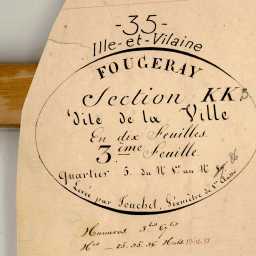 -35-
Ille-et-Vilaine
FOUGERAY
Section KK3
Dite de la Ville
En dix Feuilles
3ème Feuille
Quartier 5. du N° 1er au N° 86
Levée par Touchet, Géomètre de 1ère Classe
Numéros
25. 35. 36